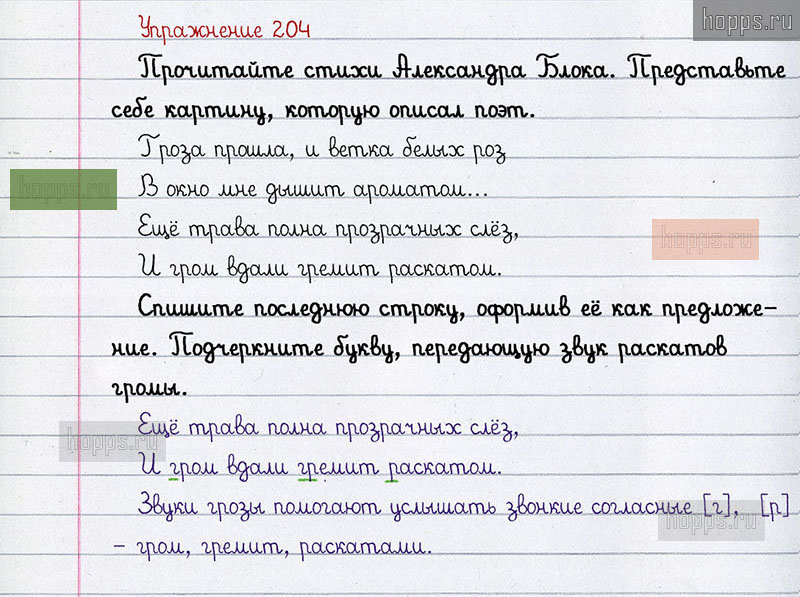 hopps.ru
Упражнение 204
Прочитайте стихи Александра Блока. Представьте
себе картину, которую описал поэт.
Гроза прошла, и ветка белых роз
hopps.ru
В окно мне дышит ароматом...
Ещё трава полна прозрачных слёз,
hopps.ru
И гром вдали гремит раскатом.
Спишите последнюю строку, оформив её как предложе-
ние. Подчеркните букву, передающую звук раскатов
громы.
Ещё трава полна прозрачных слёз,
hopps.ru
И гром вдали гремит раскатом.
Звуки грозы помогают услышать звонкие согласные [г], [р]
hopps.ru
- гром, гремит, раскатами.